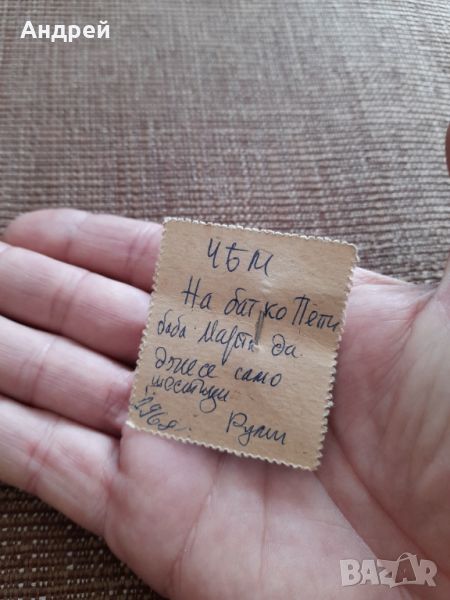 Андрей
ЧБМ
На батко Пепи
баба Марта да
донесе само
шестици
Руми
BAZAR